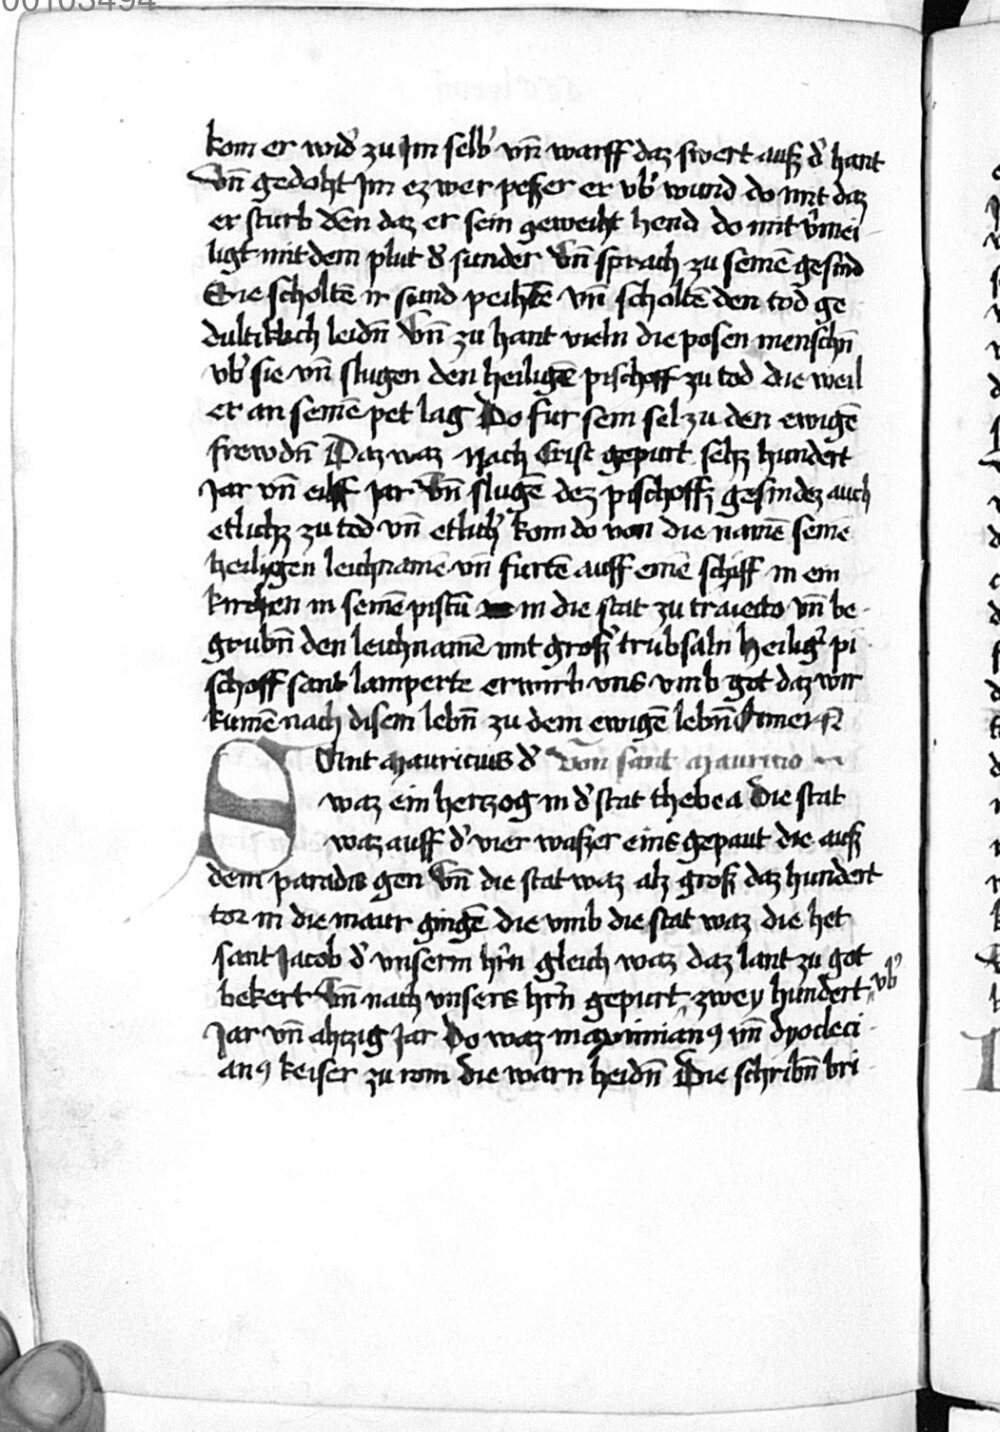 00103494
kom er wid' zu Im selb' vn̄ warff daz swert auß d' hant
Vn̄ gedoht Im ez wer peßer er vb' wund do mit daz
er sturb den daz er sein geweiht hend do mit v'mei
ligt mit dem plut d' sunder Vn̄ sprach zu seinē gesind
Sie scholtē ir sund peihtē vn̄ scholtē den tod ge
dultiklich leidn̄ Vn̄ zu hant vieln die posen menschn̄
vb' sie vn̄ slugen den heiligē pischoff zu tod die weil
er an seinē pet lag Do fur sein sel zu den ewigē
frewdn̄ Daz waz Nach Crist gepurt sehz hundert
Jar vn̄ eilff Jar Vn̄ slugē dez pischoffz gesindez auch
etlichz zu tod vn̄ etlich' kom do von die namē seinē
heiligen leichnamē vn̄ furtē auff einē schiff in ein
kirchen in seinē pistū in die stat zu traiecto vn̄ be
grubn̄ den leichnamē mit groß' trubsaln Heilig' pi
schoff sant lamperte erwirb vns vmb got daz wir
kumē nach disem lebn̄ zu dem ewigē lebn̄ Amen
SAnt Mauricius d' Von sant Mauricio
waz ein hertzog in d' stat thebea Die stat
waz auff d' vier waßer eins gepaut die auß
dem paradis gen Vn̄ die stat waz alz groß daz hundert
tor in die maur gingē die vmb die stat waz die het
sant Jacob d' vnserm hr̄n gleich waz daz lant zu got
bekert Vn̄ nach vnsers hr̄n gepurt zwey hundert vb'
Jar vn̄ ahtzig Jar Do waz maximianꝰ vn̄ dyocleci
anꝰ keiser zu rom die warn heidn̄ Die schribn̄ bri